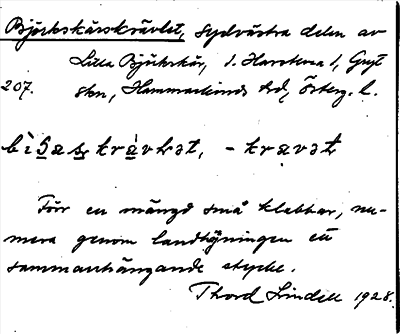 Björkskärskrävlet, sydvästra delen av
Lilla Björkskär, i. Harstena 1, Gryt
207. skn, Hammarkinds hd, Österg. l.
krävlət, - kravət
Förr en mängd små klabbar, nu-
mera genom landhöjningen ett
sammanhängande stycke.
Thord Lindell 1928.